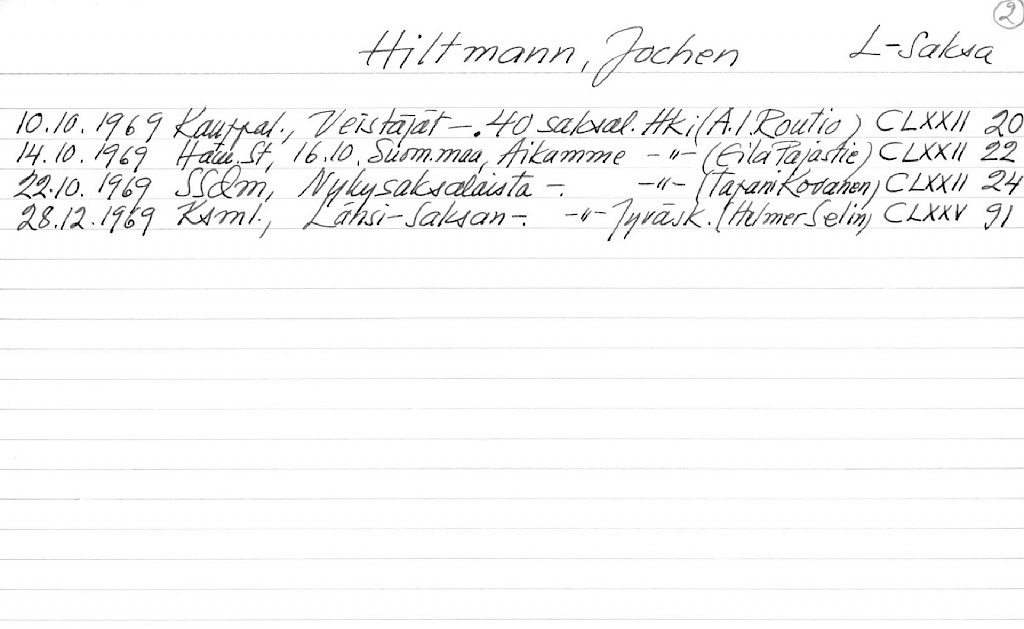 2
Hiltmann, Jochen L-Saksa
10.10.1969 Kauppal., Veistäjät -. 40 saksal. Hki (A.I. Routio) CLXXII 20
14.10.1969 16.10. Suom.maa, Aikamme -"- (Eila Pajastie) CLXXII 22
22.10.1969 Nykysaksalaista -. -"- (Tapani Kovanen) CLXXII 24
28.12.1969 Ksml., Länsi-Saksan -. -"- Jyväsk. (Helmer Selin) CLXXV 91